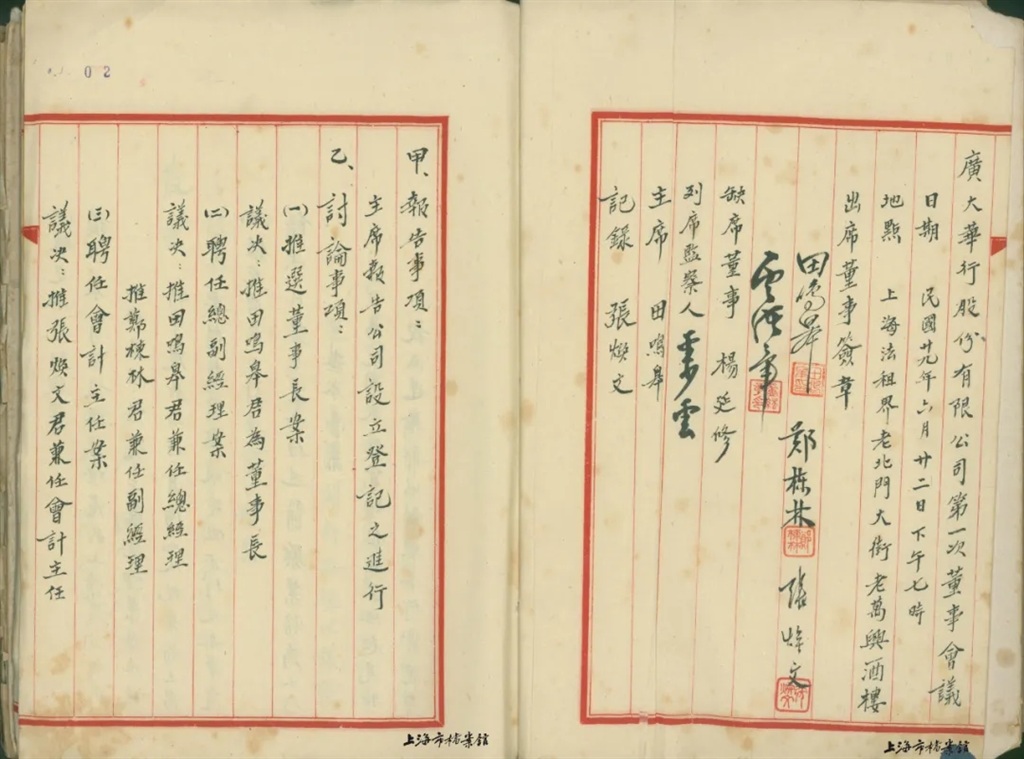 廣大華行股份有限公司第一次董事會議
日期 民國廿九年六月廿二日下午七時
地點 上海法租界老北門大街老萬興酒樓
出席董事簽章
田鳴皋 鄭棟林 張煥文
缺席董事 楊延修
列席監察人
主席 田鳴皋
記錄 張煥文
上海市檔案館
02
甲、報告事項：
主席報告公司設立登記之進行
乙、討論事項：
(一)推選董事長案
議决：推田鳴皋君為董事長
(二)聘任總副經理案
議决：推田鳴皋君兼任總經理
推鄭棟林君兼任副經理
(三)聘任會計主任案
議决：推張煥文君兼任會計主任
上海市檔案館